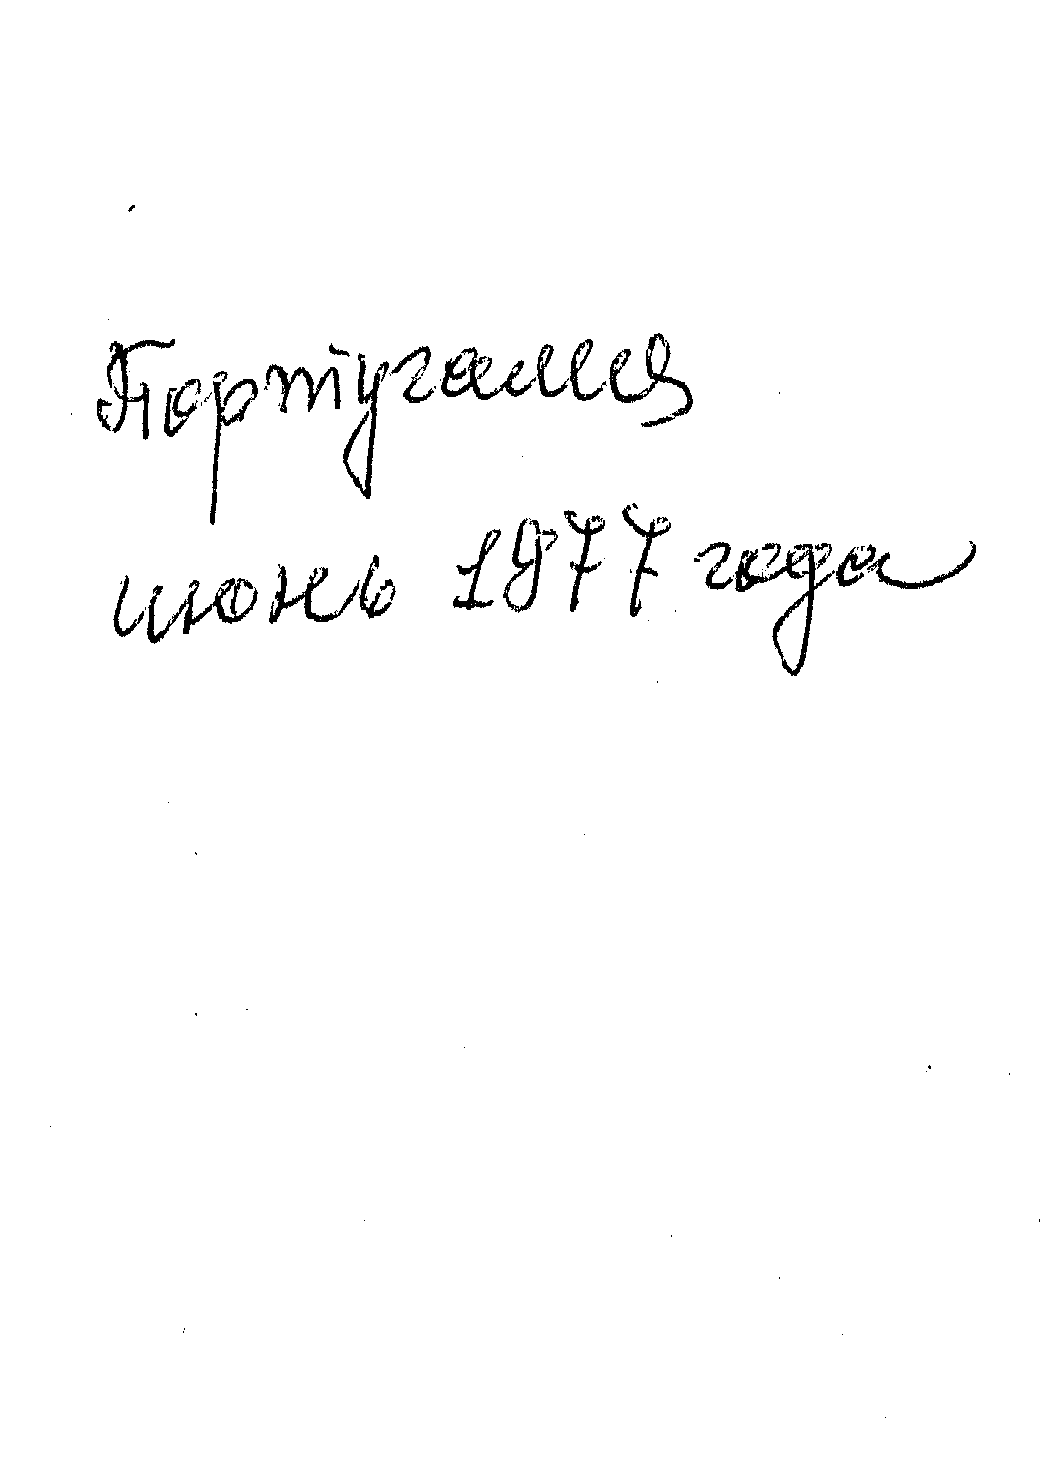 Португалия
июнь 1977 года